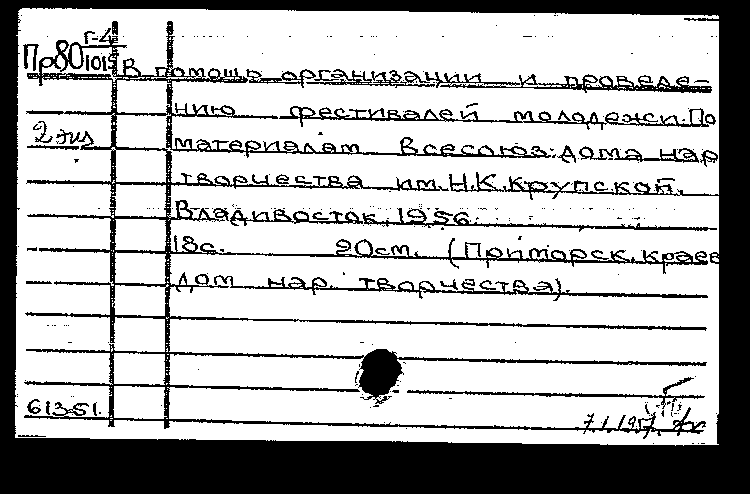 Г-4
Пр80 1015
В помощь организации и проведе=
нию фестивалей молодежи. По
2 экз
материалам Всесоюз. дома нар
творчества им. Н.К. Крупской.
Владивосток, 1956.
18с. 20см. (Приморск. краев
дом нар. творчества).
613-51.
7.1.1957.